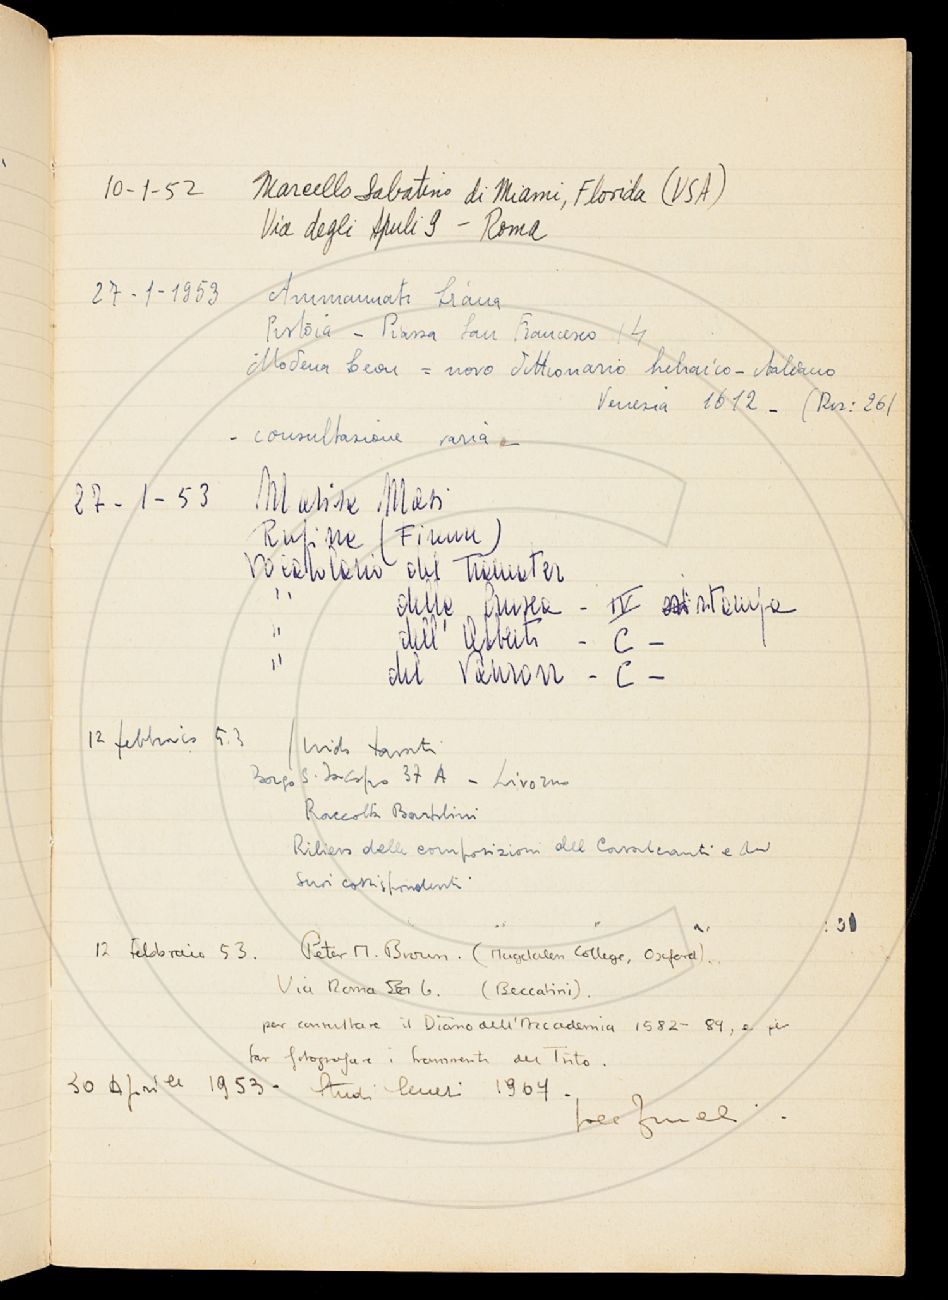 10-1-52 Marcello Sabatino di Miami, Florida (USA)
Via degli Apuli 9 - Roma
27-1-1953 Ammannati
Pistoia - Piazza San Francesco 14
Modena Leon = novo dittionario hebraico-italiano
Venezia 1612 - (Ris: 26)
- consultazione varia -
27-1-53 Marisa Masi
Rufina (Firenze)
Vocabolario del Tramater
" della Crusca - IV ristampa
" dell'Alberti - C -
" del - C -
12 febbraio 53 Guido
Borgo S. Jacopo 37 A - Livorno
Raccolta Bartolini
Rilievo delle composizioni del Cavalcanti e dei
suoi corrispondenti
31
12 Febbraio 53. Peter M. Brown. (Magdalen College, Oxford).
Via Roma 6. (Beccatini).
per consultare il Diario dell'Accademia 1582-89, e per
far fotografare i frammenti del Trito.
30 Aprile 1953 - Studi Senesi 1907.